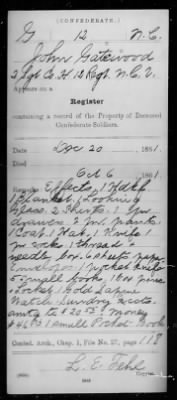 (CONFEDERATE.)
G 12 N.C.
John Gatewood
2 Sgt Co. H 12 Regt. N.C.V.
Appears on a
Register
containing a record of the Property of Deceased
Confederate Soldiers.
Date Dec 20, 1861.
Oct 6, 1861.
Remarks: Effects, 1 Hdkf.
1 Blanket, 1 Looking
Glass. 2 Shirts. 1 pr.
Drawers 2 pr. pants.
1 Coat. 1 Hat. 1 Knife 1
pr. socks. 1 thread &
needle box. 6 sheets paper
Envelopes. 1 pocket knife
1 small book.
Locket 1 Gold
Watch Sundry accts.
amtg to $20
$46 1 small Pocket Book
Confed. Arch., Chap. 1, File No. 27, page 118
L. E. Fehl
Copyist.